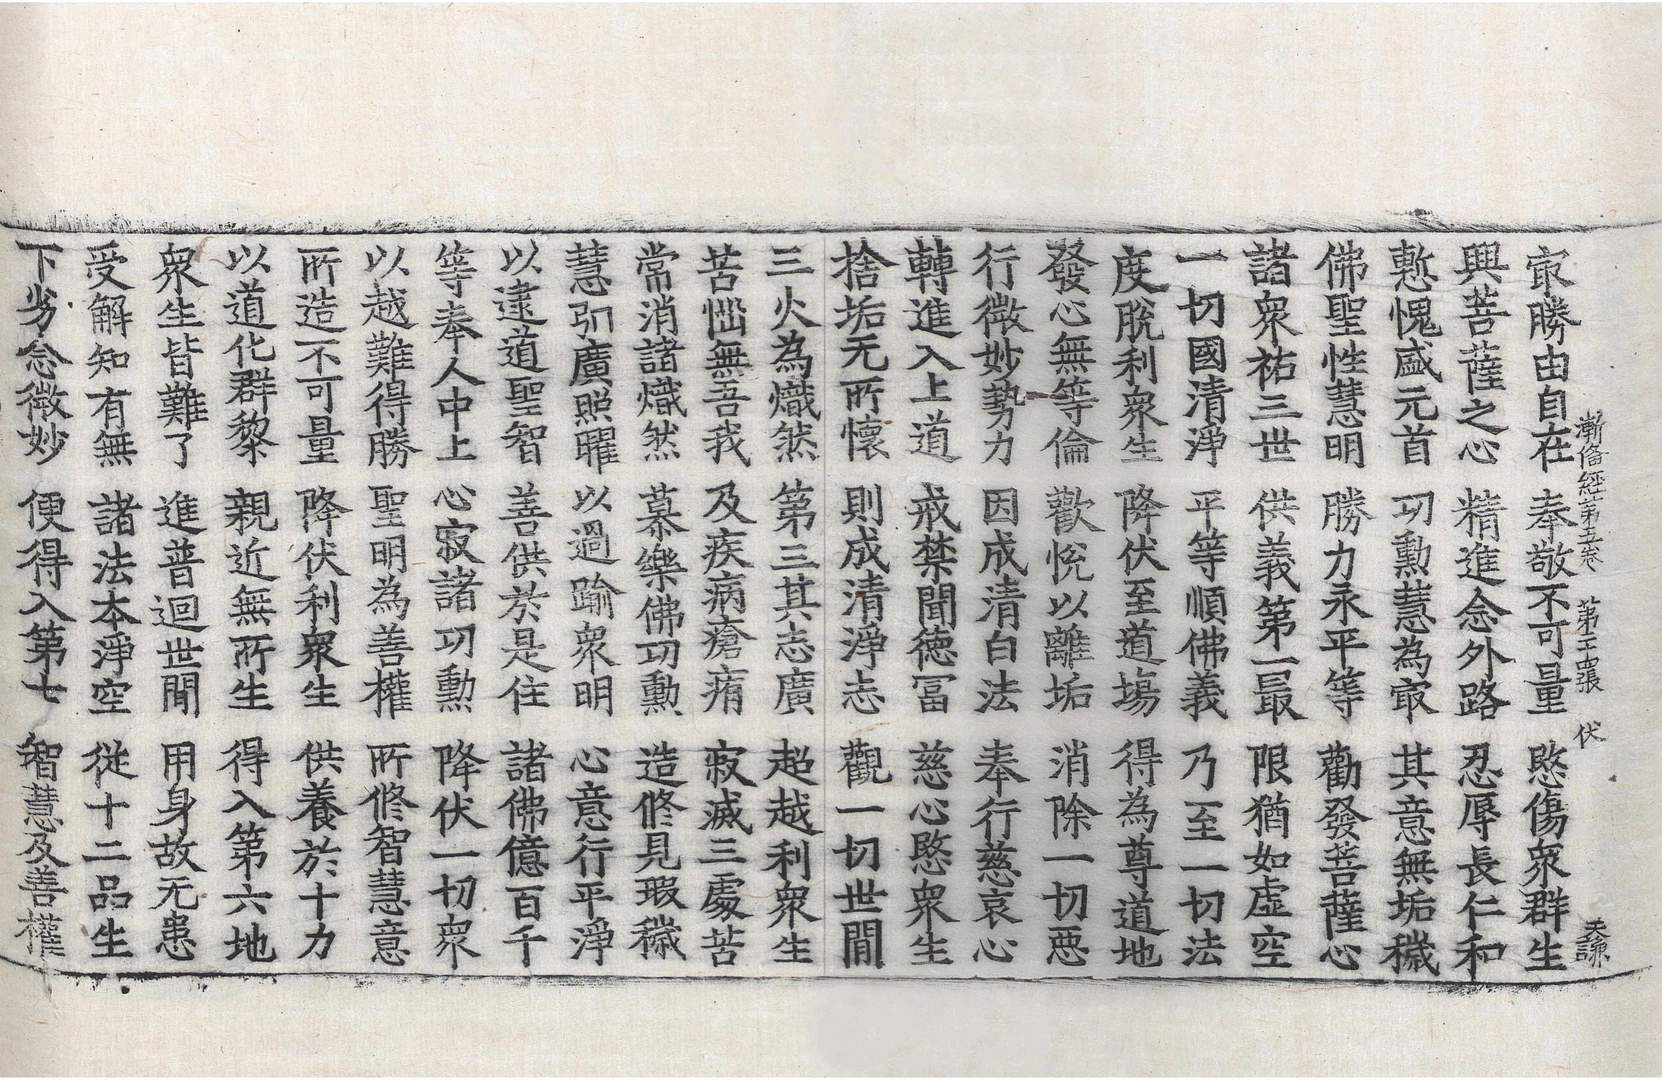 漸俻經第五卷 第張 伏
冣勝由自在 奉敬不可量 愍傷衆群生
興菩薩之心 精進念外路 忍辱長仁和
慙愧盛元首 功勳慧為冣 其意無垢穢
佛聖性慧明 勝力永平等 勸發菩薩心
諸衆祐三世 供義第一最 限猶如虛空
一切國清淨 平等順佛義 乃至一切法
度脫利衆生 降伏至道塲 得為尊道地
發心無等倫 歡悅以離垢 消除一切惡
行微妙勢力 因成清白法 奉行慈哀心
轉進入上道 戒禁聞德冨 慈心愍衆生
捨垢无所懷 則成清淨志 觀一切世閒
三火為熾然 第三其志廣 超越利衆生
苦惱無吾我 及疾病瘡痏 寂滅三處苦
常消諸熾然 慕樂佛功勳 造修見瑕穢
慧引廣照曜 以過踰衆明 心意行平淨
以逮道聖智 善供於是住 諸佛億百千
等奉人中上 心寂諸功勳 降伏一切衆
以越難得勝 聖明為善權 所修智慧意
所造不可量 降伏利衆生 供養於十力
以道化群黎 親近無所生 得入第六地
衆生皆難了 進普迴世閒 用身故无患
受解知有無 諸法本淨空 從十二品生
下劣念微妙 便得入第七 智慧及善權